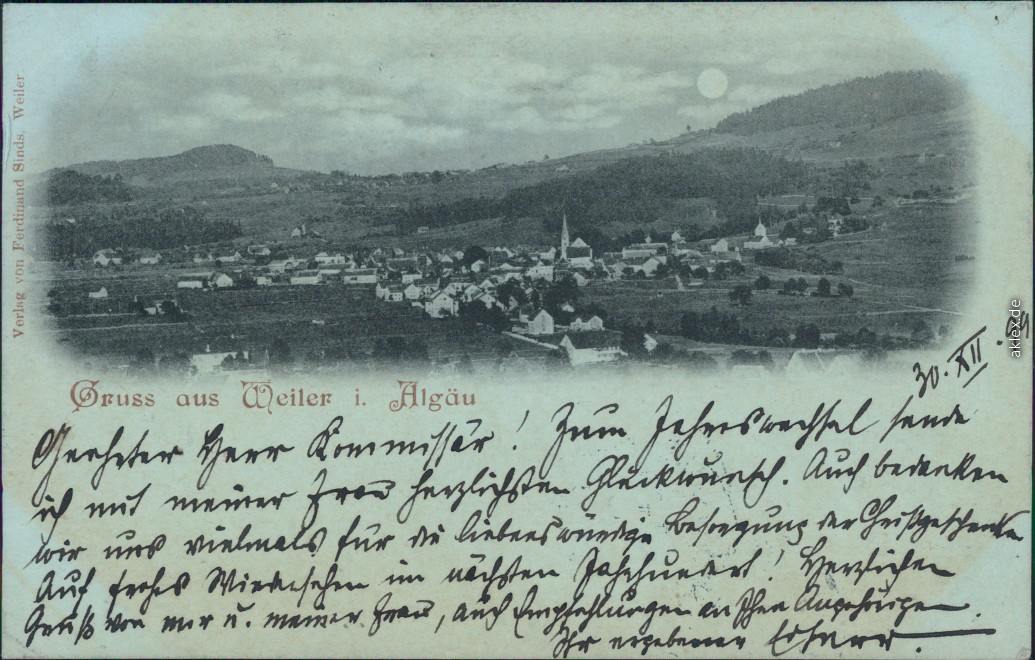 Verlag von Ferdinand Sinds, Weiler
Gruss aus Weiler i. Algäu
30. XII.
Geehrter Herr Kommissär! Zum Jahreswechsel sende
ich mit meiner Frau herzlichsten Glückwunsch. Auch bedanken
wir uns vielmals für die liebenswürdige Besorgung der Christgeschenke
Auf frohes Wiedersehen im nächsten Jahrhundert! Herzlichen
Gruß von mir u. meiner Frau, auch Empfehlungen an Ihre Angehörigen.
Ihr ergebener
aklex.de